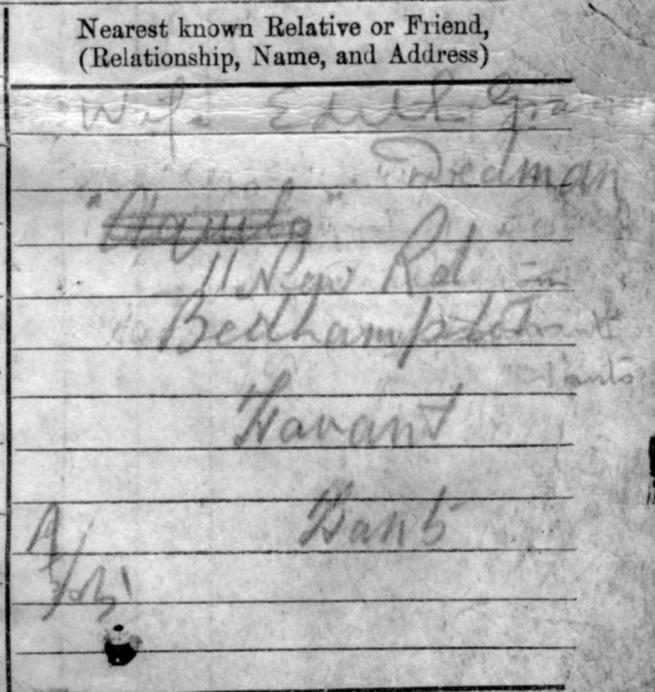 Nearest known Relative or Friend,
(Relationship, Name, and Address)
Wife Edith
Dedman
11 New Rd
Bedhampton
Hants
Havant
Hants